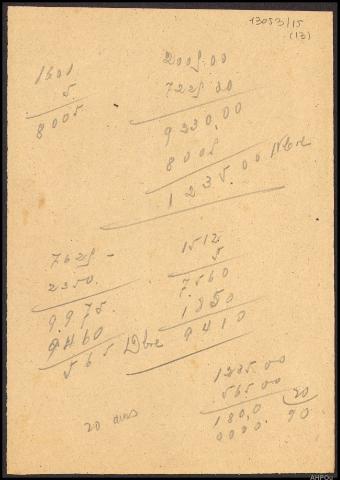 13053/15
(13)
1601
5
8005
2005.00
7225.00
9330,00
8005
1235.00 Nbre
7625 -
2350.
9.975
9460
565 Dbre
1512
5
7.560
1850
9410
1235.00
565.00
180,0
0000.
20
90
20 ans
AHPOu